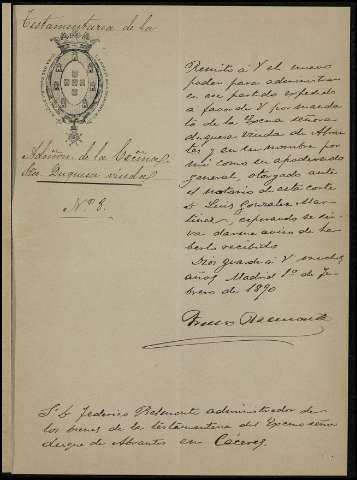 Testamentaria de la
Admón. de la Excma.
Sra. Duquesa viuda
Nº 8.
Remito á V el nuevo
poder para administrar
en ese partido expedido
á favor de V por manda
to de la Excma señora
duquesa viuda de Abran
tes, y en su nombre por
mi como su apoderado
general, otorgado ante
el notario de esta corte
D Luis Gonzalez Mar
tinez, esperando se sir
va darme aviso de ha
berlo recibido
Dios guarde á V muchos
años Madrid 1º de Fe
brero de 1890
Sr D. Federico Belmonte administrador de
los bienes de la testamentaria del Excmo señor
duque de Abrantes en Cáceres